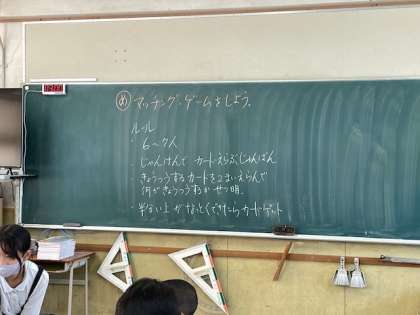 め マッチングゲームをしよう。
ルール
・6〜7人
・じゃんけんで カードえらぶじゅんばん
・きょうつうするカードを2まいえらんで
何がきょうつうするか せつ明。
・半分い上がなっとくできたらカードゲット